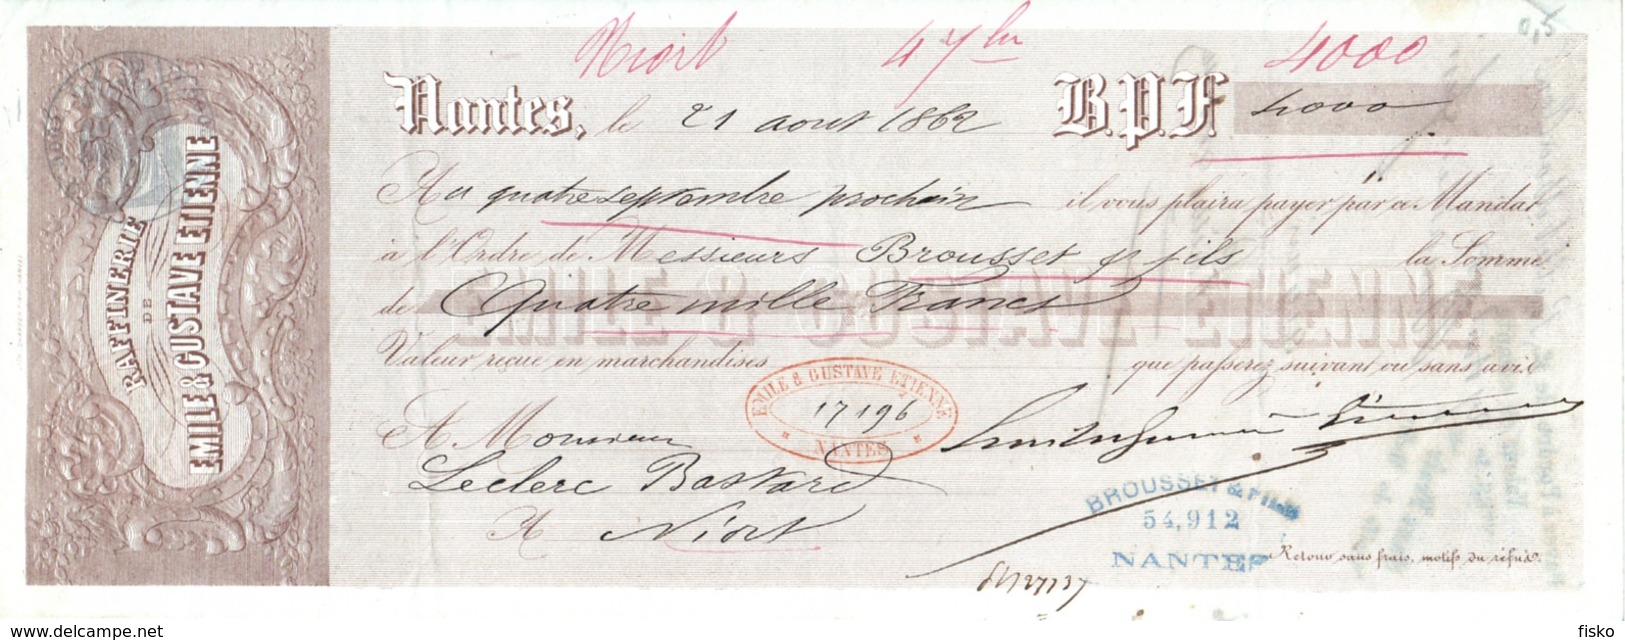 Niort 4 7bre 4000
0,5
Nantes, le 21 aout 1862 B.P.F. 4000
Au quatre septembre prochain il vous plaira payer par ce Mandat
à l'Ordre de Messieurs Brousset & fils la Somme
de Quatre mille Francs
EMILE & GUSTAVE ETIENNE
Valeur reçue en marchandises que passerez suivant ou sans avis
EMILE & GUSTAVE ETIENNE
17196
NANTES
A Monsieur
Leclerc Bastard
A Niort
BROUSSET & Fils
54,912
NANTES
Retour sans frais, motifs du refus.
RAFFINERIE
DE
EMILE & GUSTAVE ETIENNE
delcampe.net
fisko